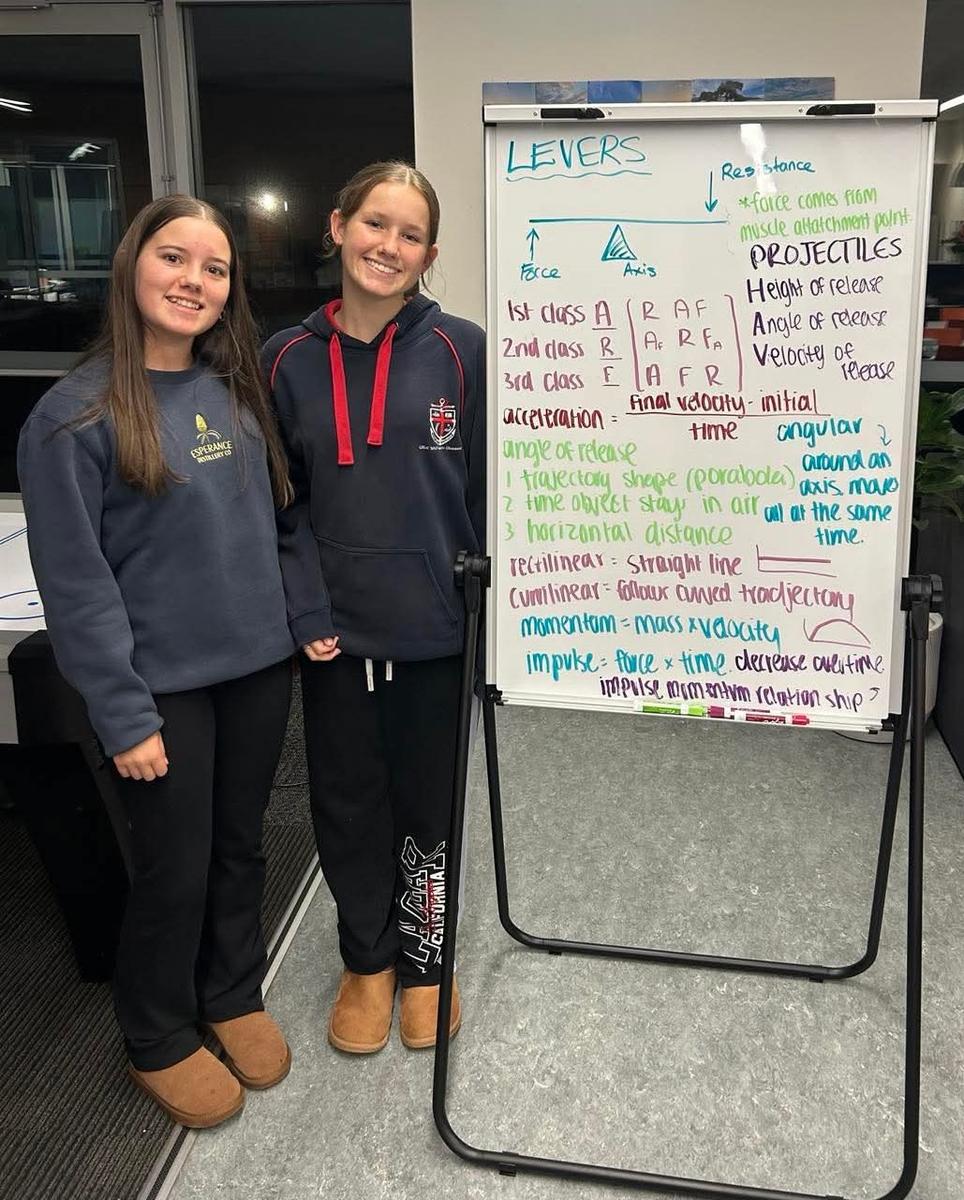 LEVERS
Resistance
*force comes from
muscle attatchment point
Force
Axis
PROJECTILES
Height of release
Angle of release
Velocity of
release
1st class A R A F
2nd class R A R F
3rd class F A F R
acceleration = final velocity - initial
time
angular
around an
axis. move
all at the same
time.
angle of release
1 trajectory shape (parabola)
2 time object stays in air
3 horizontal distance
rectilinear = straight line
curvilinear = follows curved tradjectory
momentum = mass x velocity
impulse = force x time. decrease over time
impulse momentum relationship
ESPERANCE
DISTILLERY CO
CALIFORNIA